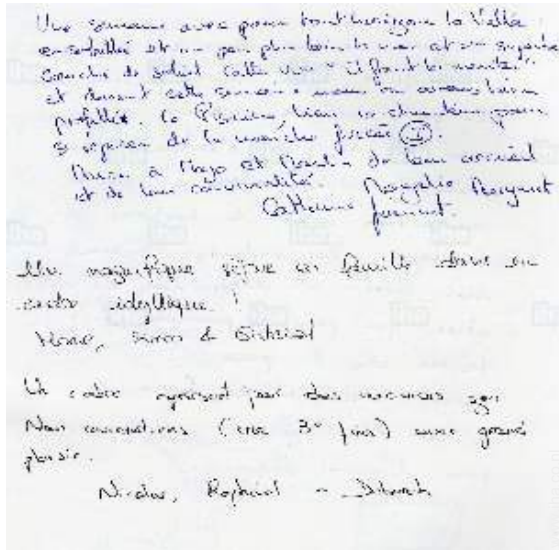 Une semaine avec pour tout horizon la Vallée
ensoleillée et un peu plus loin la mer et un superbe
couché de soleil. Cette vue il faut la
et durant cette semaine nous en avons bien
profitée. La Piscine, bien pour
se reposer de la marche forcée
Merci à Majo et de leur accueil
et de leur convivialité.
Catherine Margent
Un magnifique séjour en famille dans un
cadre idyllique !
&
Un cadre apaisant pour des vacances zen
Nous reviendrons (une 3e fois) avec grand
plaisir.
Nicolas, Raphaël - Deborah